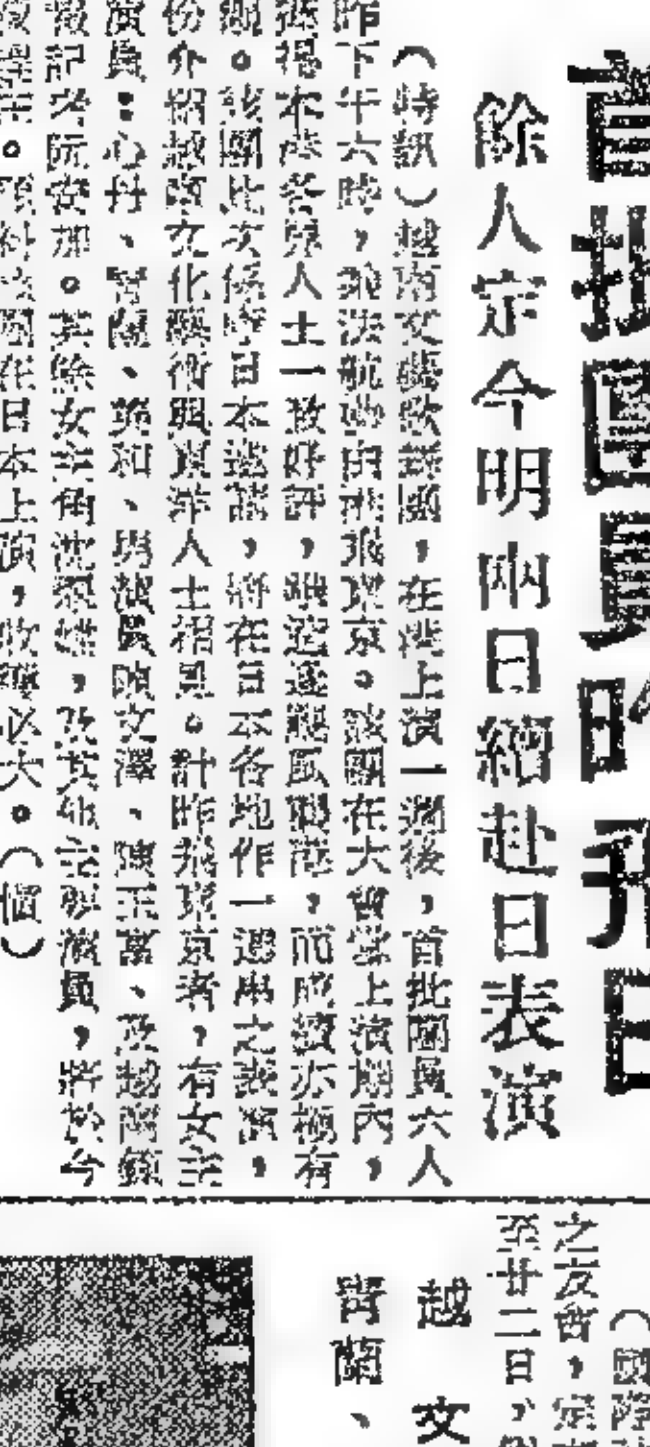 首批團員昨飛日
餘人定今明兩日續赴日表演
（特訊）越南文藝歌舞團，在港上演一週後，首批團員六人
昨下午六時，乘法航機由港飛東京。該團在大會堂上演期內，
獲得本港各界人士一致好評，雖適逢颶風襲港，而成績亦極有
。該團此次係應日本邀請，將在日本各地作一連串之表演，
份介紹越南文化藝術與東洋人士相見。計昨飛東京者，有女主
演員：心丹、青蘭、 和、男演員 文澤、陳玉富、及越南
報記者阮安加。其餘女主角沈 雄，及其他主要演員，將於今
。預料該團在日本上演，收穫必大。（ ）
（國際
之友會，定
至廿二日，
越文
青蘭、